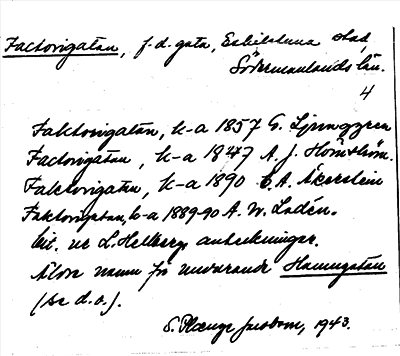 Factorigatan, f.d. gata, Eskilstuna stad,
Södermanlands län.
4
Faktorigatan, k-a 1857 G. Ljunggren
Factorigatan, k-a 1847 A. J. Hörnström.
Faktorigatan, k-a 1890 C. A. Åkerstein
Faktorigatan, k-a 1889-90 A. W. Lodén.
Cit. ur L. Hellbergs anteckningar.
Äldre namn på nuvarande Hamngatan
(se d.o.).
S. Plænge Jacobson, 1943.